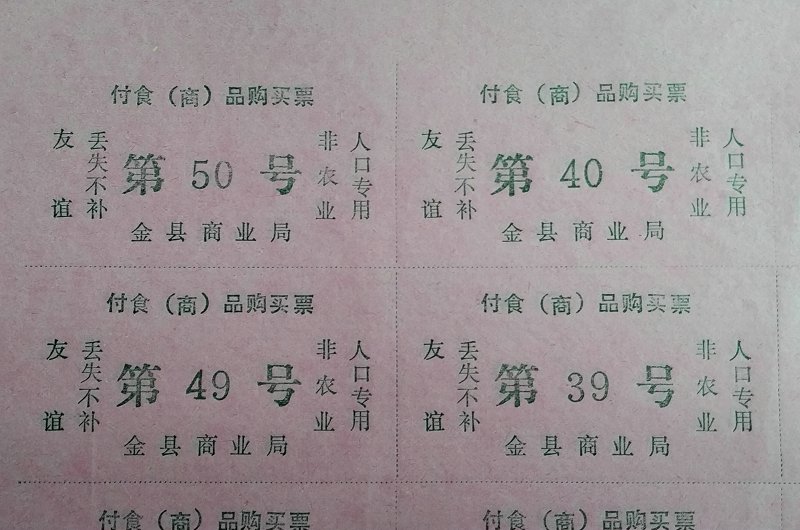 付食（商）品购买票
友谊
丢失不补
第 50 号
非农业
人口专用
金县商业局
付食（商）品购买票
友谊
丢失不补
第 40 号
非农业
人口专用
金县商业局
付食（商）品购买票
友谊
丢失不补
第 49 号
非农业
人口专用
金县商业局
付食（商）品购买票
友谊
丢失不补
第 39 号
非农业
人口专用
金县商业局
付食（商）品购买票
付食（商）品购买票